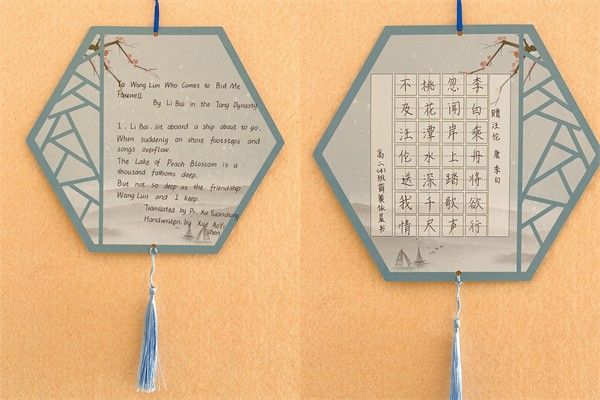 To Wang Lun Who Comes to Bid Me
Farewell
By Li Bai in the Tang Dynasty
I, Li Bai, sit aboard a ship about to go,
When suddenly on shore footsteps and
songs overflow.
The Lake of Peach Blossom is a
thousand fathoms deep,
But not so deep as the friendship
Wang Lun and I keep.
Translated by Pr. Xu Yuanchong
Handwriten by Xue AoYi
chen
赠汪伦 唐 李白
李白乘舟将欲行
忽闻岸上踏歌声
桃花潭水深千尺
不及汪伦送我情
高二(4)班 书